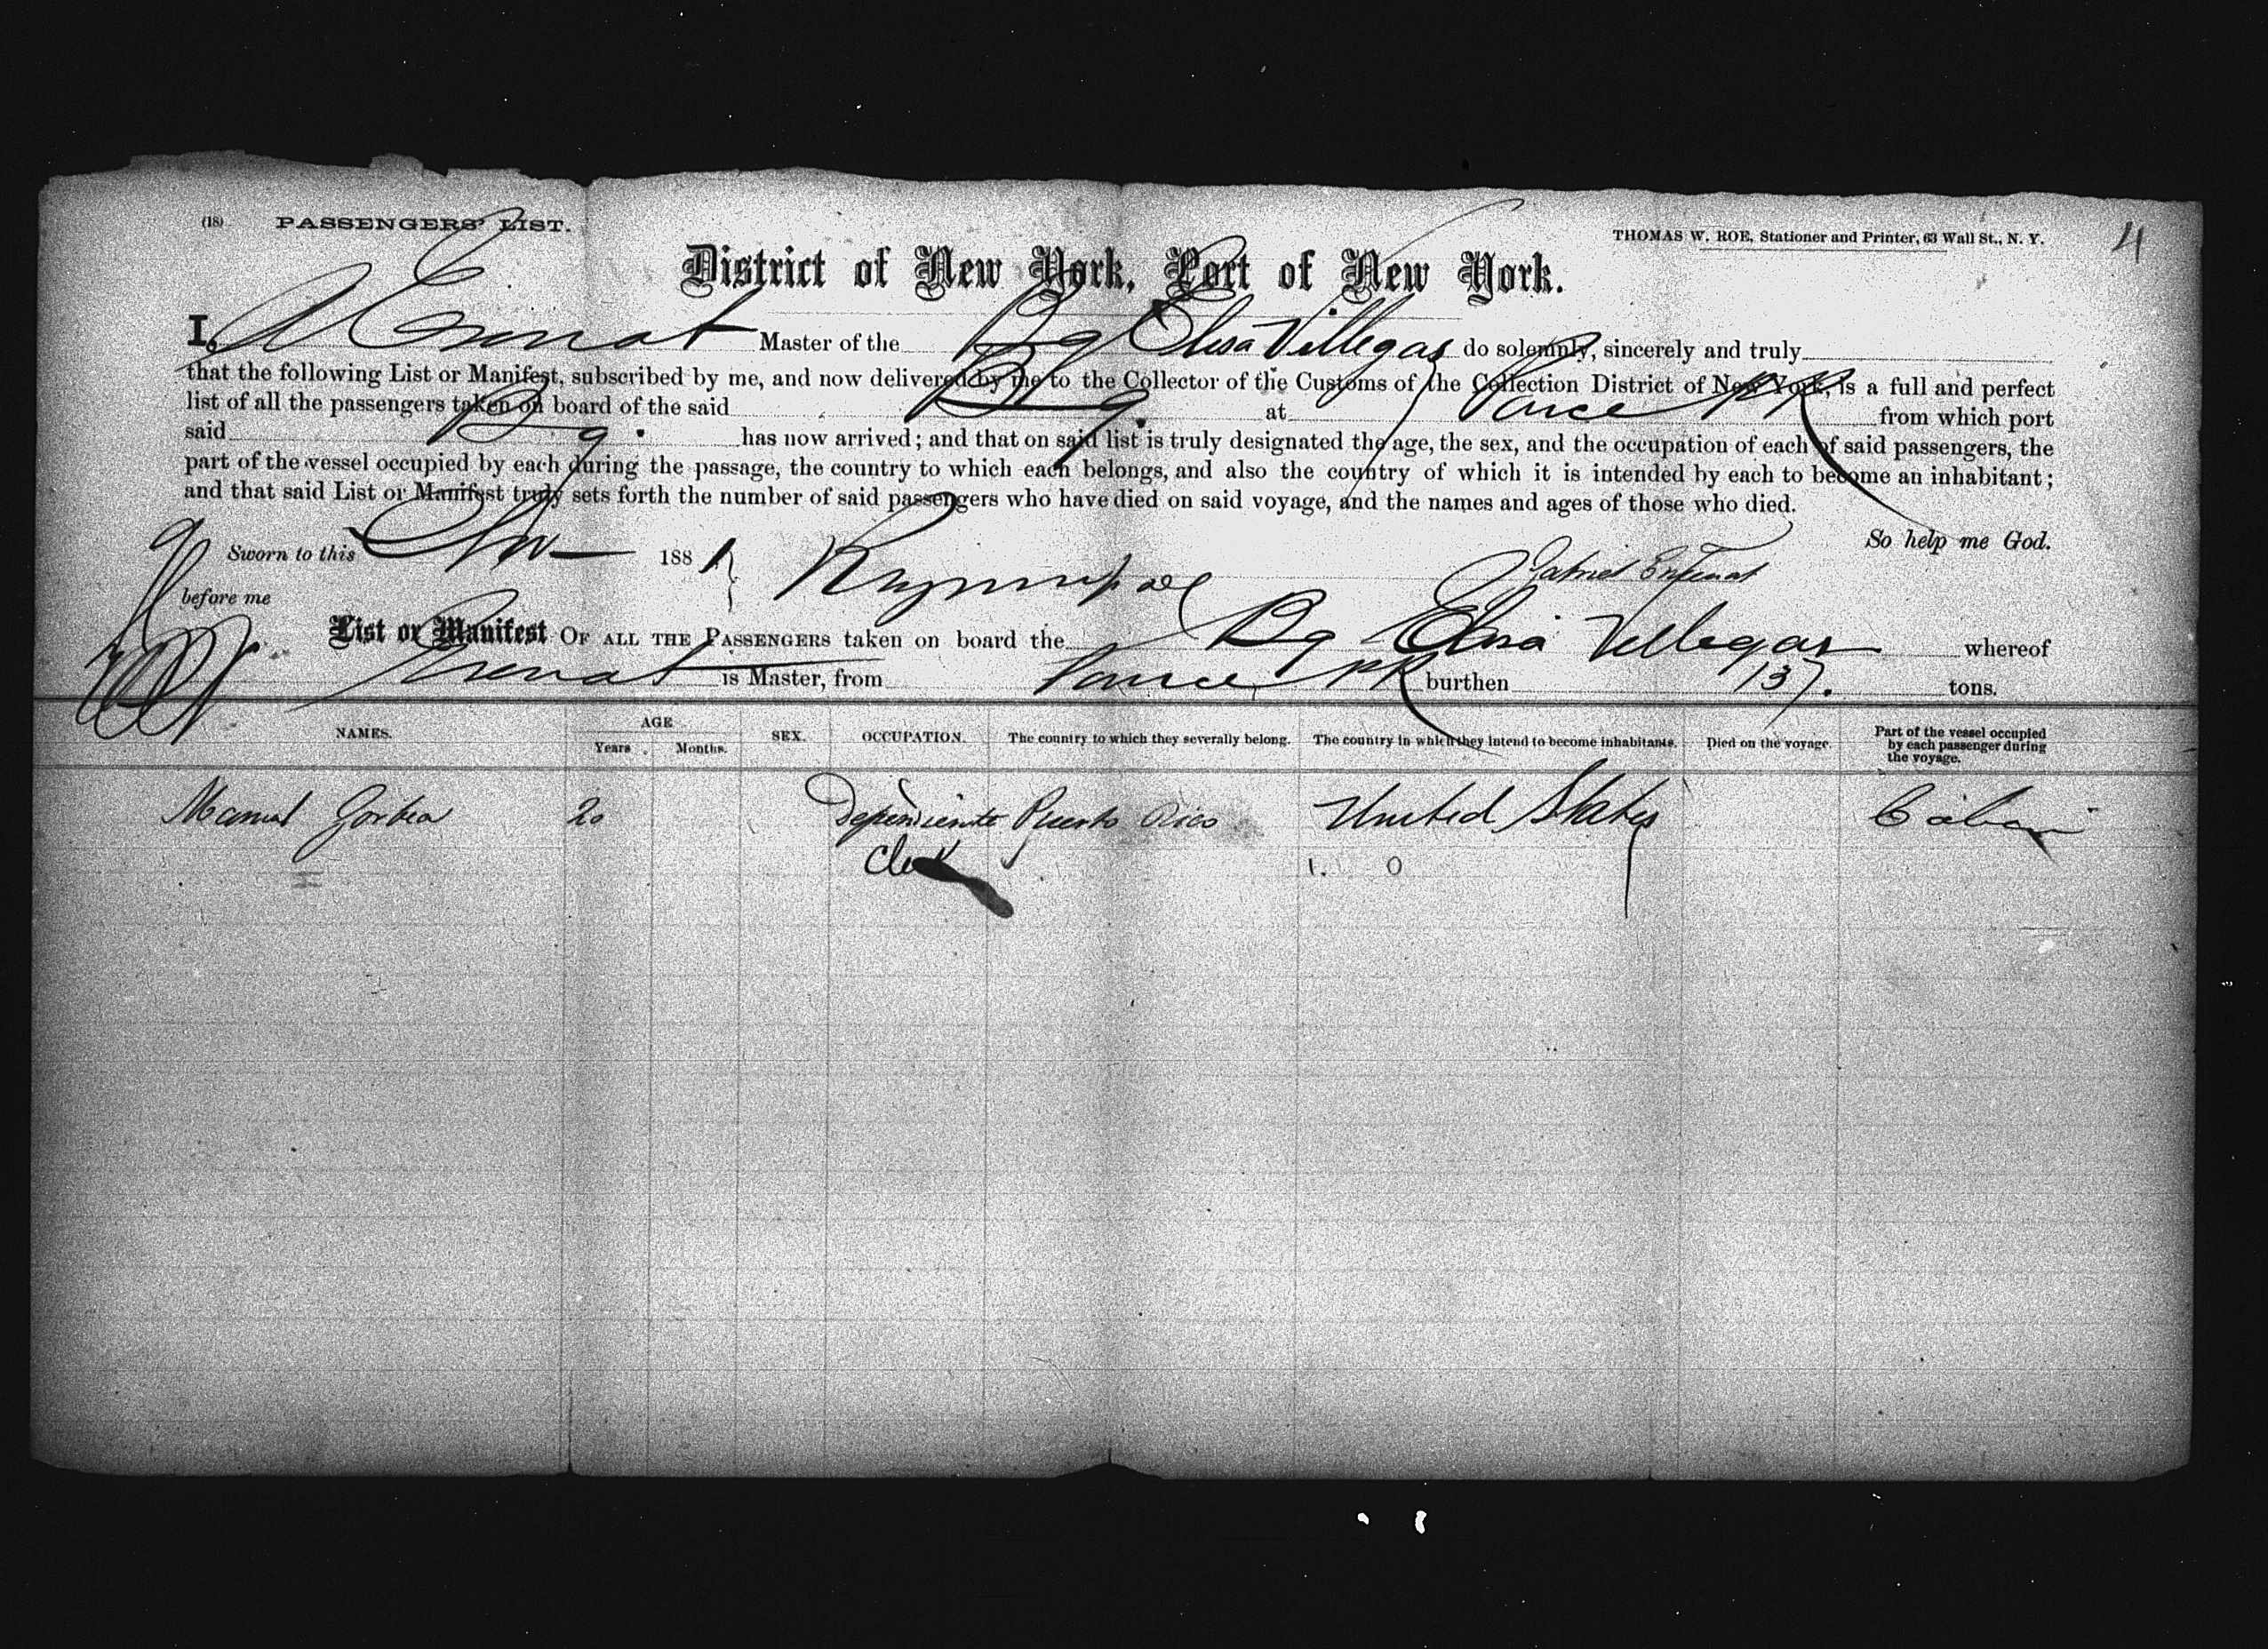 (18) PASSENGERS' LIST.
THOMAS W. ROE, Stationer and Printer, 63 Wall St., N. Y.
4
District of New York, Port of New York.
I, Master of the Bg Elisa Villegas do solemnly, sincerely and truly
that the following List or Manifest, subscribed by me, and now delivered by me to the Collector of the Customs of the Collection District of New York, is a full and perfect
list of all the passengers taken on board of the said Bg. at Ponce PR from which port
said Bg. has now arrived; and that on said list is truly designated the age, the sex, and the occupation of each of said passengers, the
part of the vessel occupied by each during the passage, the country to which each belongs, and also the country of which it is intended by each to become an inhabitant;
and that said List or Manifest truly sets forth the number of said passengers who have died on said voyage, and the names and ages of those who died.
So help me God.
Sworn to this 1881
Gabriel
before me
List or Manifest OF ALL THE PASSENGERS taken on board the Bg Elisa Villegas whereof
is Master, from Ponce PR burthen 137. tons.
NAMES. AGE Years. Months. SEX. OCCUPATION. The country to which they severally belong. The country in which they intend to become inhabitants. Died on the voyage. Part of the vessel occupied by each passenger during the voyage.
Manuel Gorbea 20 Dependiente Puerto Rico United States Cabin
Clerk 1. 0